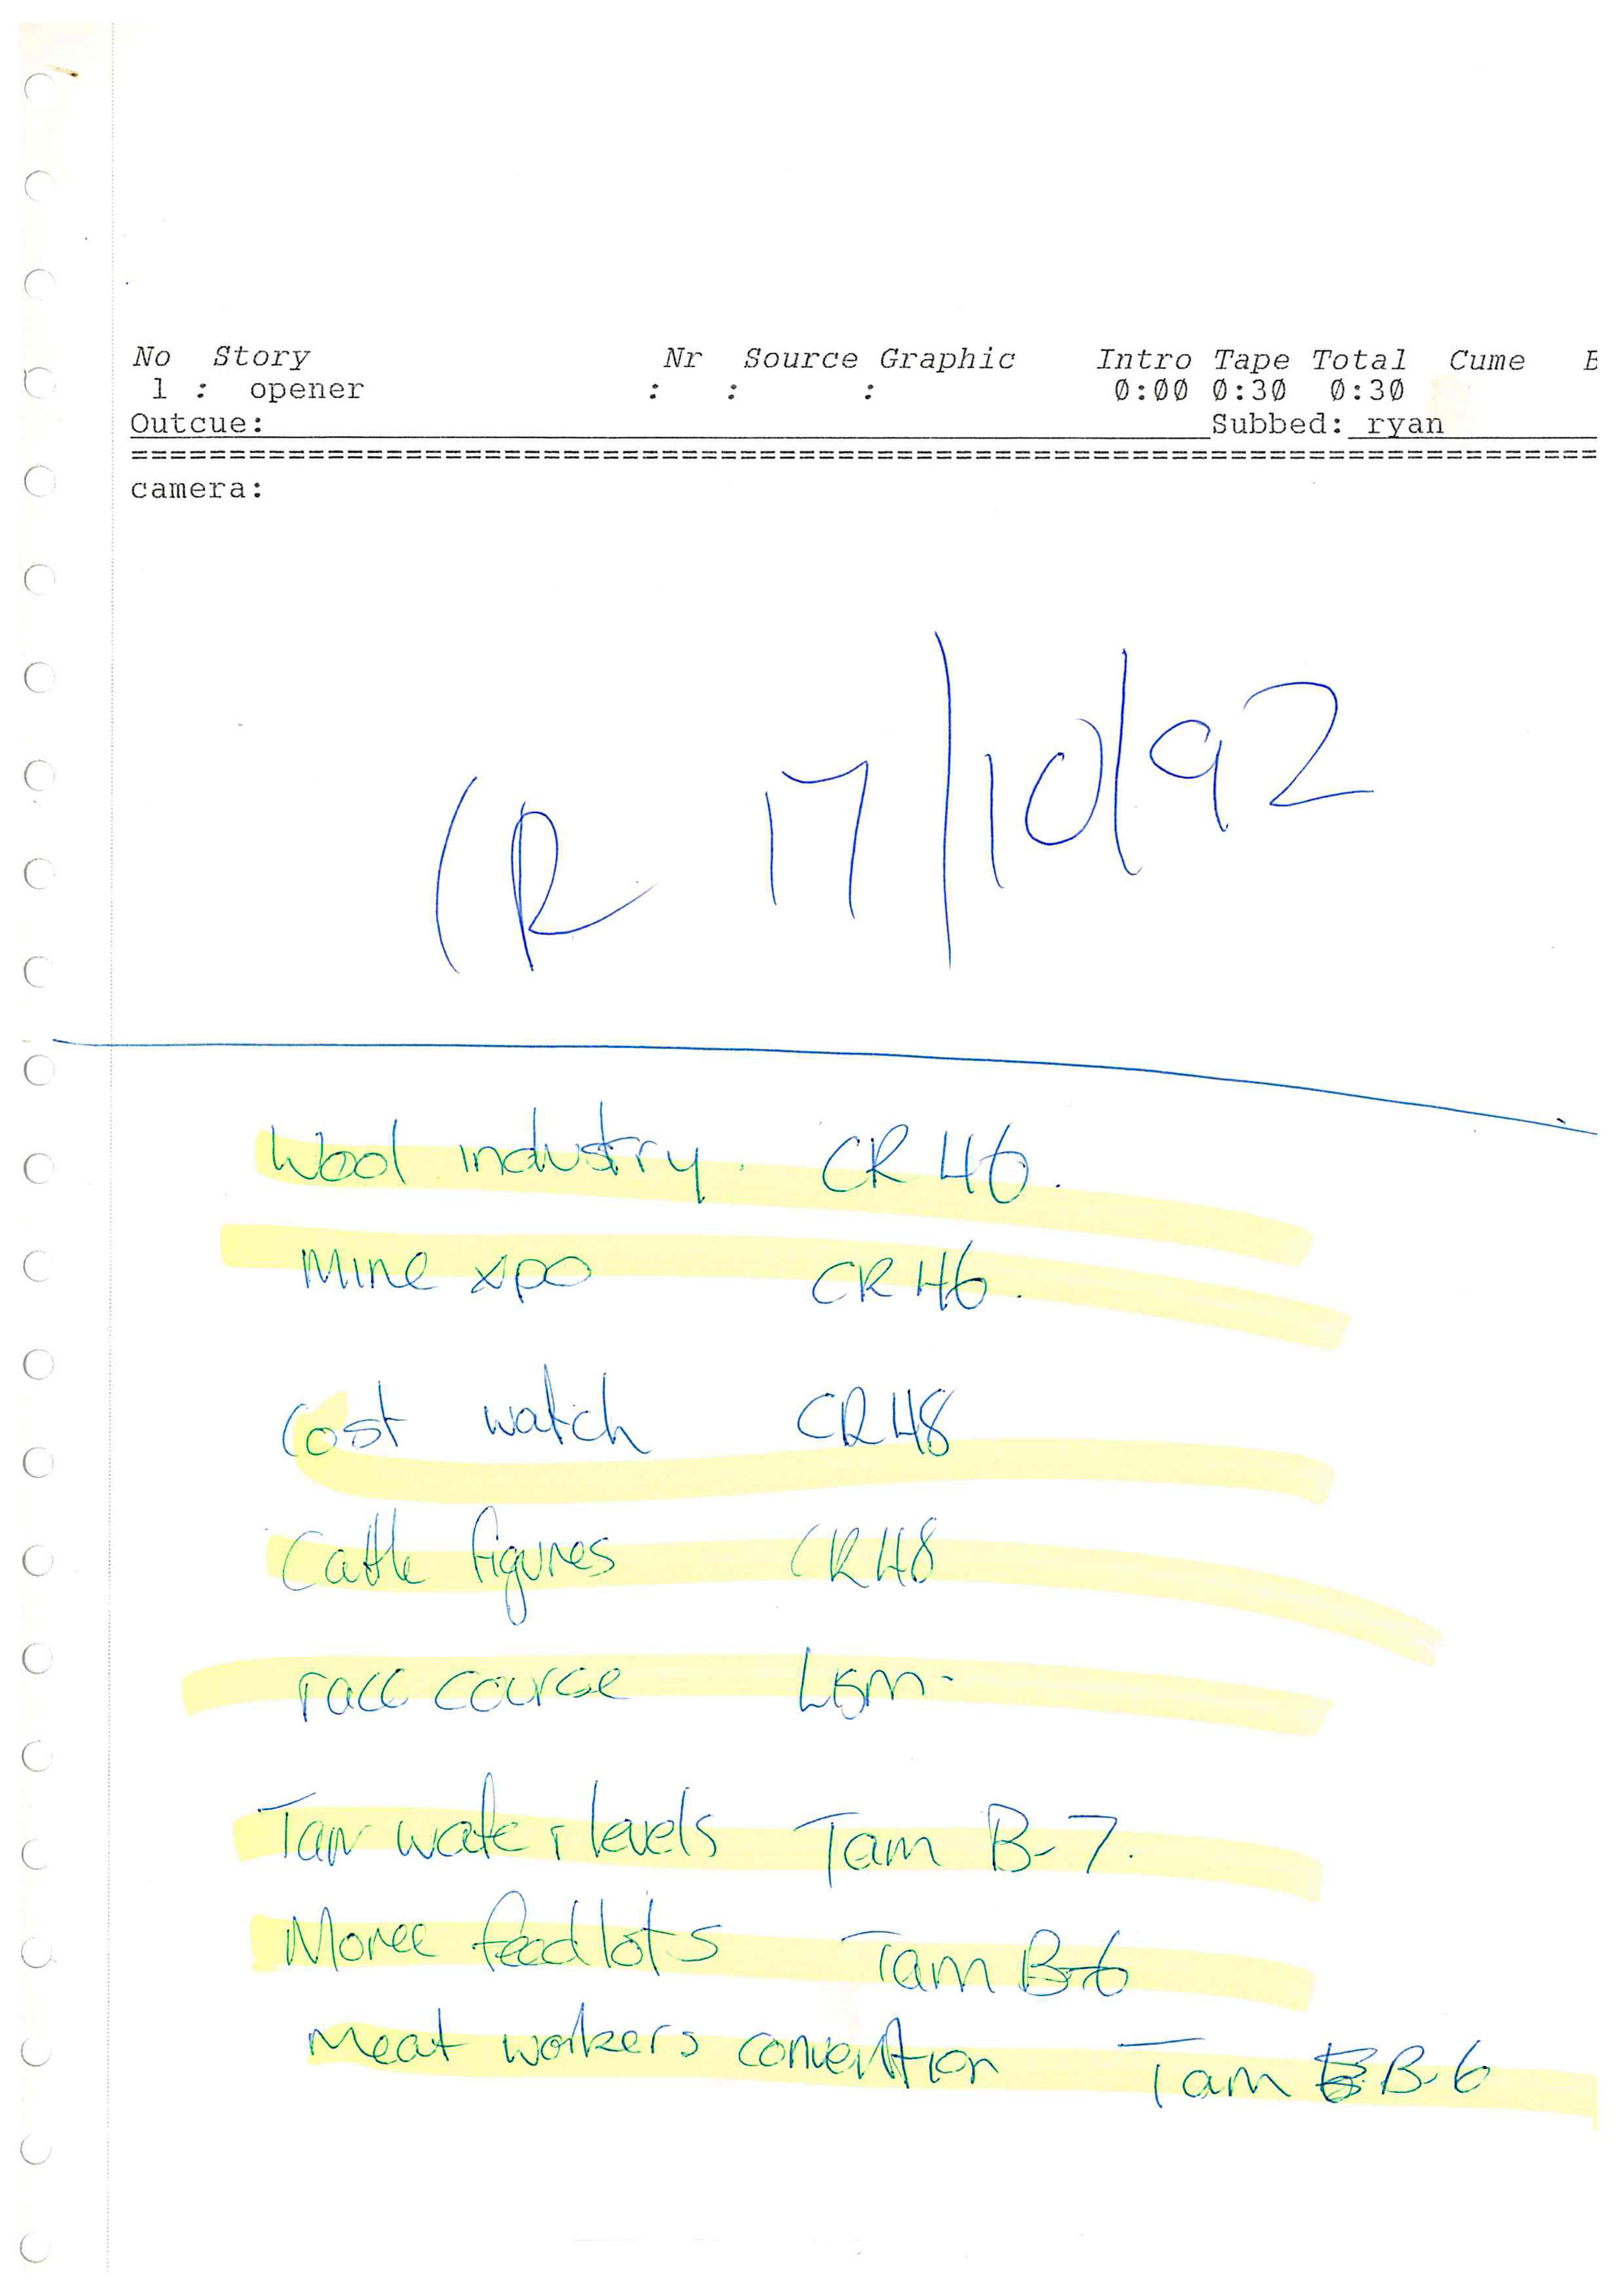 No Story Nr Source Graphic Intro Tape Total Cume
1 : opener : : : 0:00 0:30 0:30
Outcue: Subbed: ryan
================================================================================
camera:
CR 17/10/92
Wool industry. CR 46.
Mine xpo CR 46.
Cost watch CR48
Cattle figures CR48
race course
Tam water levels Tam B-7.
Moree feedlots Tam B-6
Meat workers convention Tam B-6